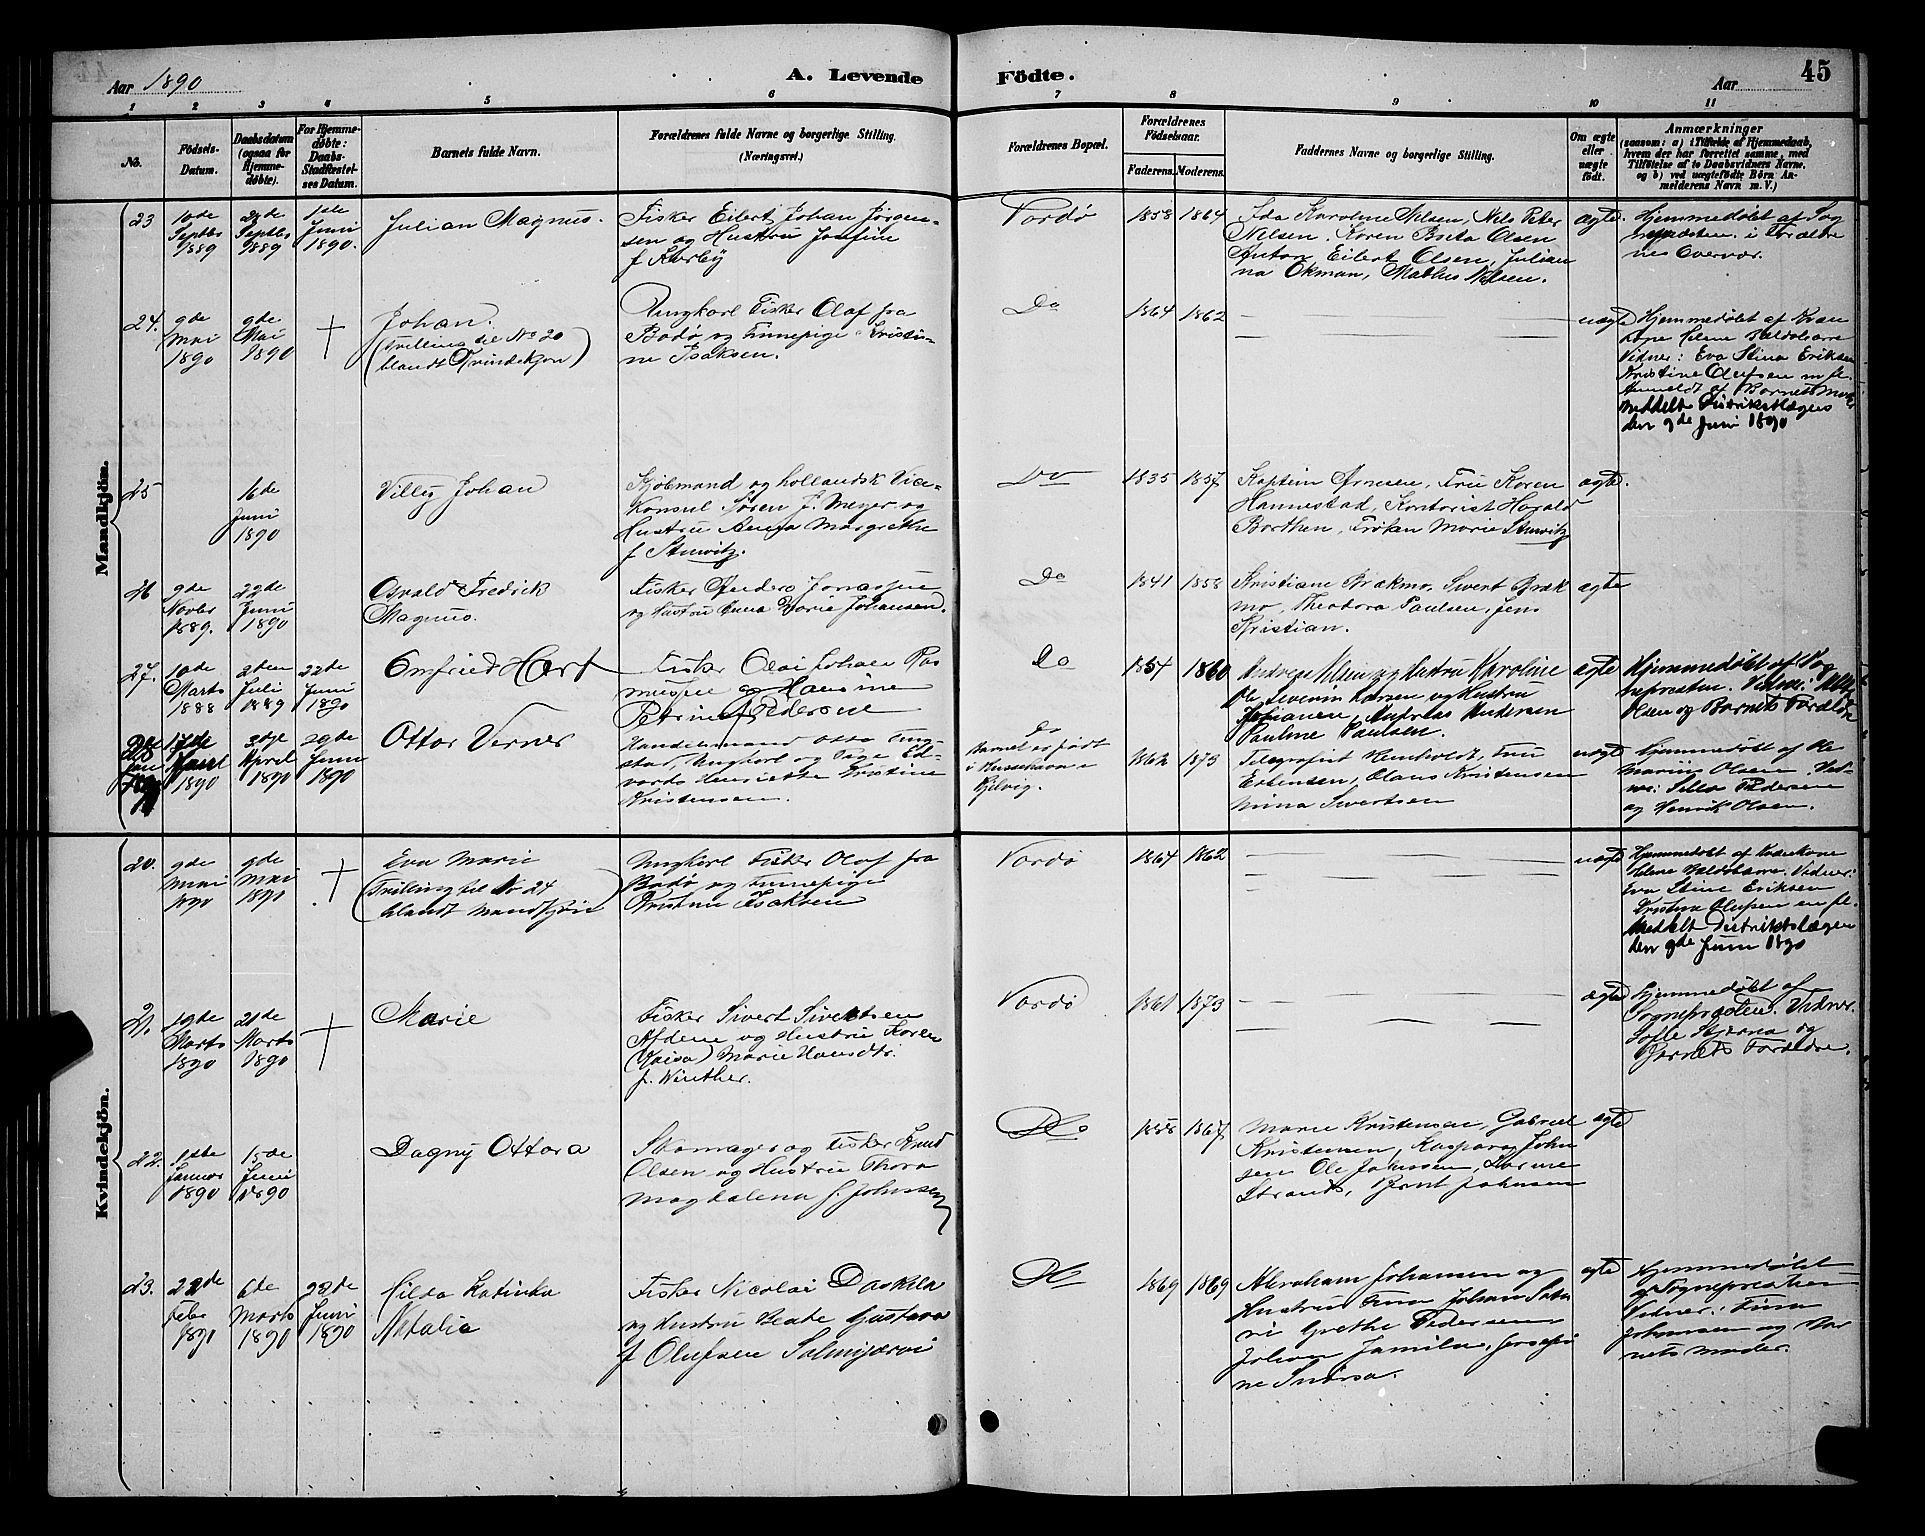 Aar 1890
A. Levende
Födte.
Aar
45
1 2 3 4 5 6 7 8 9 10 11
No.
Födsels-
Datum.
Daabsdatum
(ogsaa for
Hjemme-
döbte).
For Hjemme-
döbte:
Daabs-
Stadfæstel-
ses Datum.
Barnets fulde Navn.
Forældrenes fulde Navne og borgerlige Stilling.
(Næringsvei.)
Forældrenes Bopæl.
Forældrenes
Födselsaar.
Faderens.
Moderens.
Faddernes Navne og borgerlige Stilling.
Om ægte
eller
uægte
födt.
Anmærkninger
(saasom: a) i Tilfælde af Hjemmedaab,
hvem der har forrettet samme, med
Tilföielse af to Daabsvidners Navne.
og b) ved uægtefödte Börn An-
melderens Navn m. V.)
Mandkjön.
23
10de
Septbr
1889
Septbr
1889
1ste
Juni
1890.
Julian Magnus.
Fisker Eilert Johan Jørgen-
sen og Hustru Josefine
Vardø
1858
1864
Ida Karoline Nilsen, Nils Peter
Nilsen. Karen Berta Olsen
Anton Eilert Olsen, Julian
na Økman, Mathis Nilsen.
ægte.
Hjemmedøbt af Sog
nepræsten i Forældre
nes Overvær.
24.
9de
Mai
1890
9de
Mai
1890
†
Johan.
(Tvilling til No 20
blandt Qvindekjøn)
Ungkarl Fisker Olaf fra
Bodø og Finnepige Kristi-
ne Isaksen.
Do
1864
1862
uægte
Hjemmedøbt af Kvæn
Vidner: Eva Stina Eriksen
Kristine Olufsen m fl.
Anmeldt af Barnets Moder
Meddelt Distriktslægen
den 9de Juni 1890
25
16de
Juni
1890
Villy Johan
Kjøbmand og hollandsk Vice-
Konsul Søren J. Meyer og
Hustru Anna Margrethe
f Stuwitz.
Do
1835
1857
Kaptein Arnesen, Fru Karen
Hannestad, Kontorist Harald
Borthen, Frøken Marie Stuwitz
ægte.
26
9de
Novbr
1889.
29de
Juni
1890
Osvald Fredrik
Magnus.
Fisker Anders Jonassen
og Hustru Anna Marie Johansen.
Do
1841
1858
Kristiane Brækmo, Sivert Bræk
mo, Theodora Paulsen, Jens
Kristian.
ægte
27.
10de
Marts
1888
2den
Juli
1889
22de
Juni
1890
Omfried Hart
Fisker Olai Johan Ras
mussen og Hansine
Petrine f Pedersen
Do
1854
1860
Andreas Nilsen og Hustru Karoline
Ole Severin Larsen og Hustru
Johanne, Andreas Andersen
Pauline Paulsen.
ægte
Hjemmedøbt af Sog
nepresten. Vidner:
Olsen og Barnets Forældre
28
17de
1890
3dje
April
1890
29de
Juni
1890
Ottar Verner
Handelsmand Otto
stad, Ungkarl og Pige Ed-
varda Henriette Kristine
Kristensen.
Do
Barnet er født
i
Kjelvig.
1862
1873
Telegrafist Humboldt, Fru
Erbensen, Olaus Kristensen
Mina Sivertsen
uægte
Hjemmedøbt af Ole
Mariús Olsen. Vid-
ner: Silla Pedersen
og Henrik Olsen.
Kvindekjön.
20.
9de
Mai
1890
9de
Mai
1890
†
Eva Marie
(Tvilling til No 24
blandt Mandkjøn)
Ungkarl Fisker Olaf fra
Bodø og Finnepige
Kristine Isaksen
Vardø
1864
1862
uægte
Hjemmedøbt af Kvænkone
Vidner:
Eva Stine Eriksen
Kristine Olufsen m fl.
Meddelt Distriktslægen
den 9de Juni 1890
21.
19de
Marts
1890
21de
Marts
1890
†
Marie
Fisker Sivert Sivertsen
og Hustru Karen
(Kaisa) Marie Hansdtr.
f. Winther.
Vardø
1861
1873
ægte
Hjemmedøbt af
Sognepræsten. Vidner.
Sofie Stjerna og
Barnets Forældre.
22.
1ste
Januar
1890
15de
Juni
1890
Dagny Ottora
Skomager og Fisker Knud
Olsen og Hustru Thora
Magdalena f. Johnsen
Do
1858
1867
Marie Kristensen, Gabriel
Kristensen, Kaspara John
sen Ole Johnsen, Karine
Strand, Bernt Johnsen
ægte
23.
22de
Febr
1890
6de
Marts
1890
22de
Juni
1890
Hilda Katinka
Natalie
Fisker Nicolai Daskila
og Hustru Beate Gustava
f Olufsen Salmijærvi
Do
1869
1869
Abraham Johansen og
Hustru Fina Johan Salm
ni Grethe Pedersen
Johan Jamilne, Josefi
ne Snörsa.
ægte
Hjemmedøbt
af Sognepræsten
Vidner: Fina
Johansen og Bar
nets Moder.